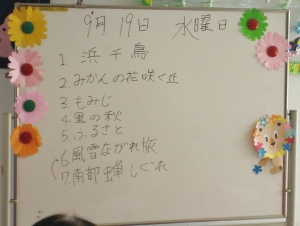 9月19日 水曜日
1 浜千鳥
2.みかんの花咲く丘
3.もみじ
4.里の秋
5.ふるさと
6.風雪ながれ旅
7.南部蝉しぐれ